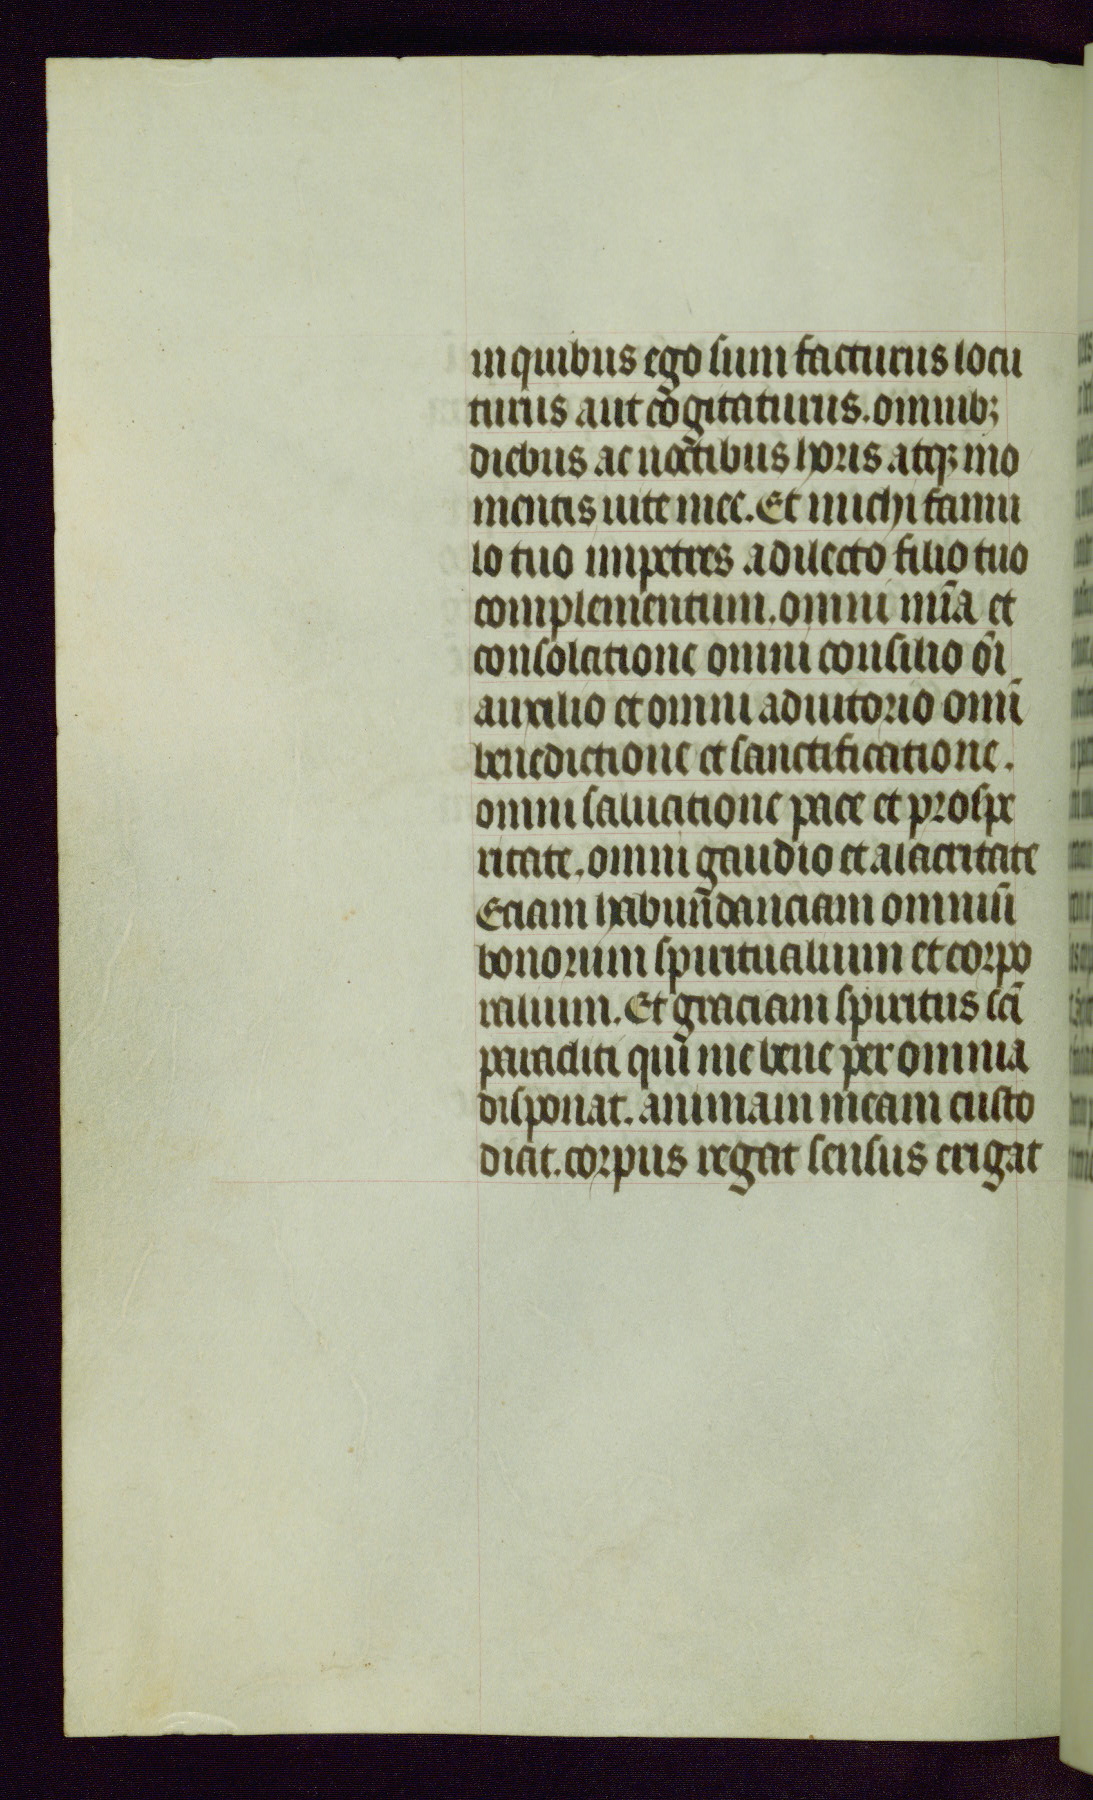 in quibus ego sum facturus locu
turus aut cõgitaturus. omnib;
diebus ac noctibus horis atq; mo
mentis uite mee. Et michi famu
lo tuo impetres a dilecto filio tuo
complementum. omni mĩa et
consolatione omni consilio oĩ
auxilio et omni adiutorio omĩ
benedictione et sanctificatione.
omni saluatione pace et prospe
ritate. omni gaudio et alacritate
Eciam habundanciam omniũ
bonorum spiritualium et corpo
ralium. Et graciam spiritus scĩ
paracliti qui me bene per omnia
disponat. animam meam custo
diat. corpus regat sensus erigat